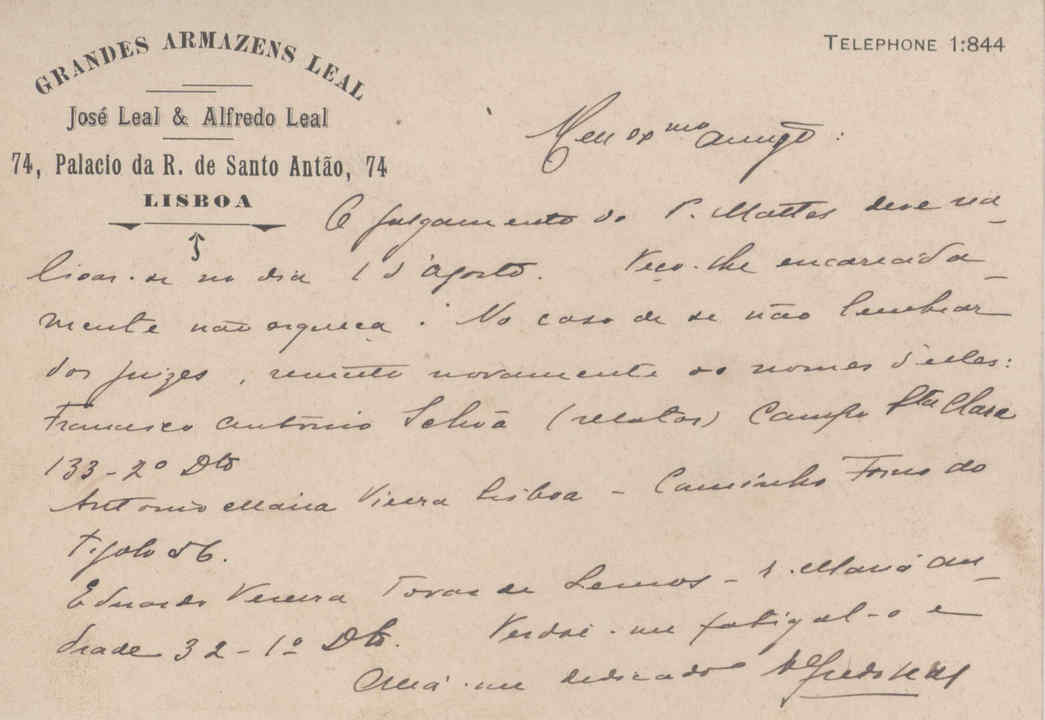 GRANDES ARMAZENS LEAL
José Leal & Alfredo Leal
74, Palacio da R. de Santo Antão, 74
LISBOA
TELEPHONE 1:844
Meu exmo amigo:
O julgamento do P. Mattos deve rea-
lisar-se no dia 1 d'agosto. Peço-lhe encarecida-
mente não esqueça. No caso de se não lembrar
dos juizes, remetto novamente os nomes d'elles:
Francisco António (relator) Campo Sta Clara
133-2º Dto
Antonio Maria Vieira Lisboa - Caminho Forno do
Tijolo 56.
Eduardo Tovar de Lemos - R. Maria An-
drade 32-1º Dto. Perdoe-me fatigal-o e
creia-me dedicado Alfredo Leal